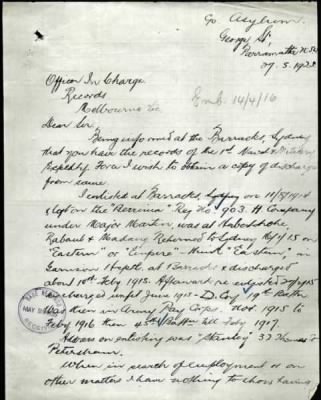 Go Asylum
George St
Parramatta N.S.W
27.5.1928
Officer In Charge
Records
Melbourne Vic
Emb 14/4/16
Dear Sir,
Being informed at the Barracks, Sydney
that you have the records of the 1st Naval & Military
Expedty Force I wish to obtain a copy of discharge
from same.
I enlisted at Barracks Sydney on 1914
& left on the "Berrima" Reg No. 903. H Company
under Major Martin, was at
Rabaul & Madang Returned to Sydney 15 on
"Eastern" or "Empire" think "Eastern", in
Garrison at Barracks & discharged
about 10th Feby 1915. Afterwards re enlisted
until June 1915 - D. Coy 19th Battn
then in Army Pay Corps. 1915 to
Feby 1916 then 45th Battn till Feby 1917.
Address on enlisting was "Stanley" 37 Thomas St
Petersham.
When in search of employment or on
other matters I have nothing to show having